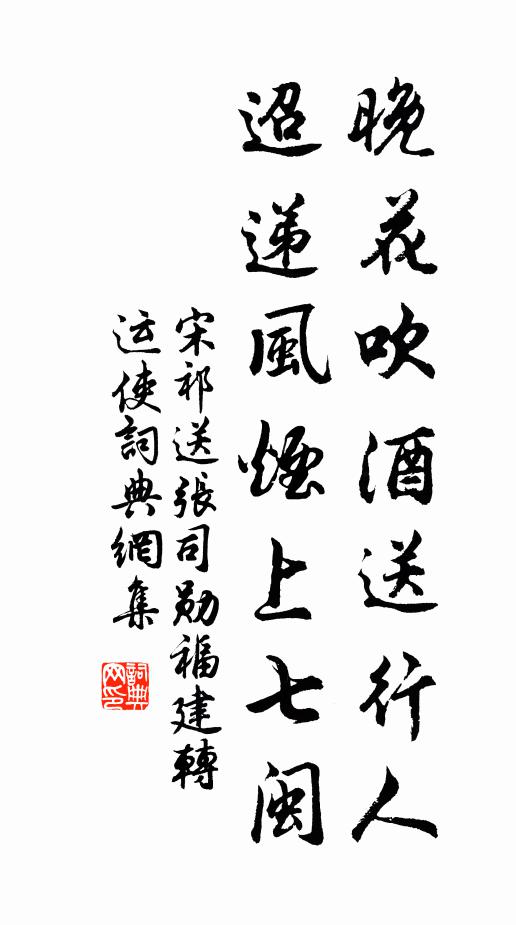 晚花吹酒送行人
迢递風煙上七閩
宋祁送張司勋福建轉
运使詞典網集
詞典网印